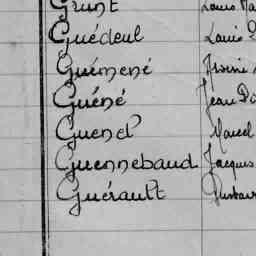 Grunt Louis
Guédeul Louis
Guémené
Guéné Jean
Guenel Marcel
Guennebaud Jacques
Guérault Gustave